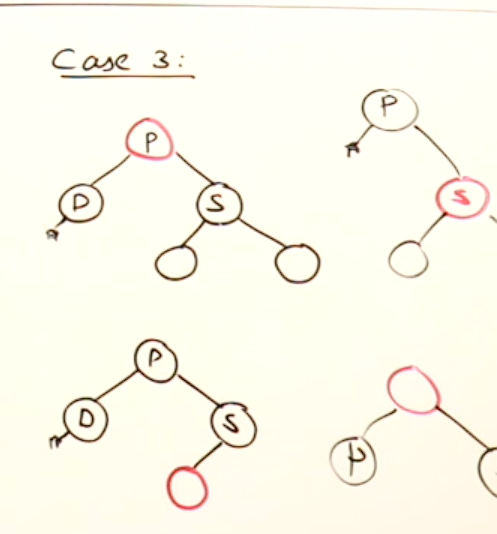 Case 3:
P
D
S
P
S
P
D
S
P